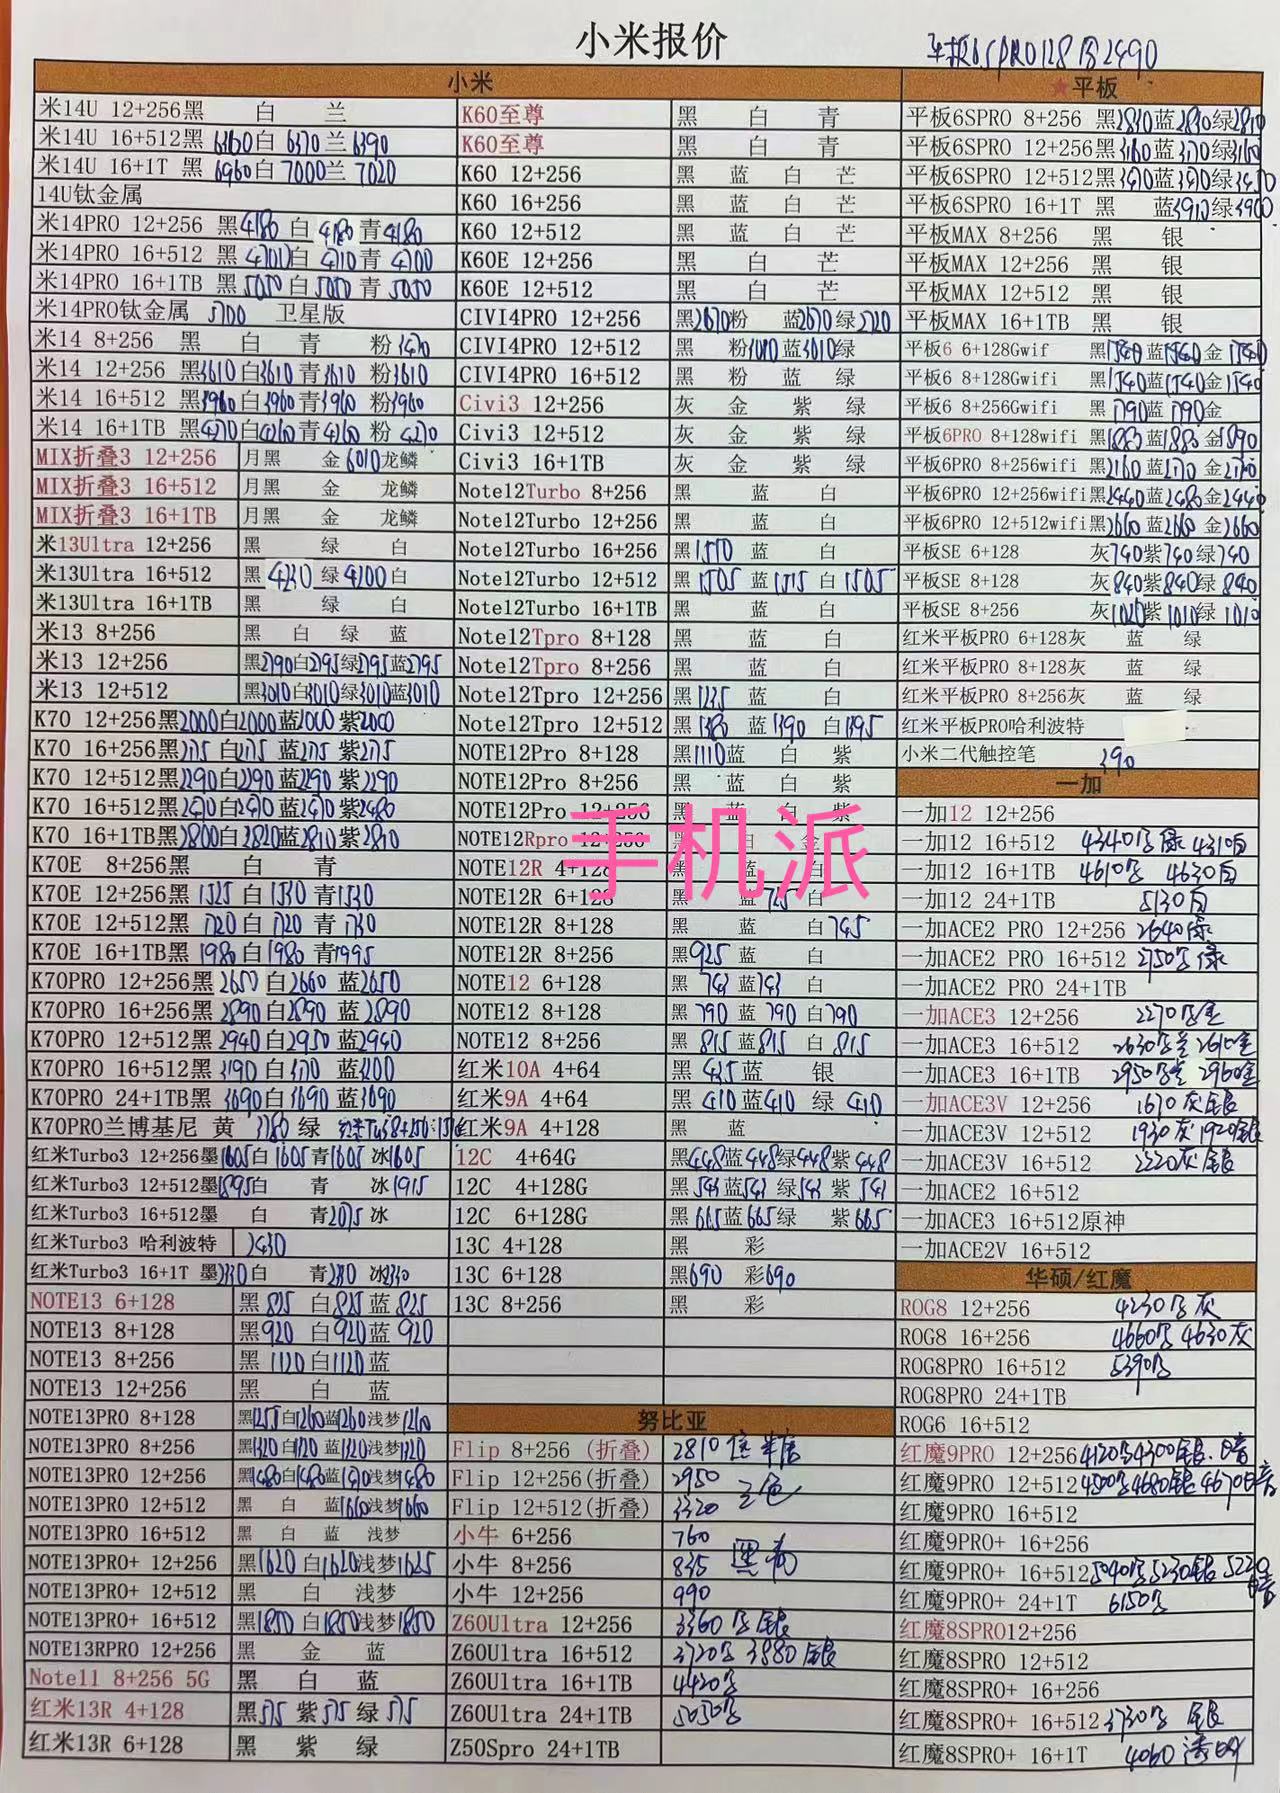 小米报价
小米
米14U 12+256黑 白 兰
米14U 16+512黑 6360白 6370兰 6390
米14U 16+1T 黑 6960白 7000兰 7020
14U钛金属
米14PRO 12+256 黑4180 白 4180 青4180
米14PRO 16+512 黑 白 4710青 4700
米14PRO 16+1TB 黑5050白5050青 5050
米14PRO钛金属 5700 卫星版
米14 8+256 黑 白 青 粉
米14 12+256 黑3610白3610青3610 粉3610
米14 16+512 黑3960白3960青3960 粉3960
米14 16+1TB 黑4270白4260青4260 粉 4270
MIX折叠3 12+256 月黑 金6010龙鳞
MIX折叠3 16+512 月黑 金 龙鳞
MIX折叠3 16+1TB 月黑 金 龙鳞
米13Ultra 12+256 黑 绿 白
米13Ultra 16+512 黑 绿4200白
米13Ultra 16+1TB 黑 绿 白
米13 8+256 黑 白 绿 蓝
米13 12+256 黑2790白2795绿2795蓝2795
米13 12+512 黑3010白3010绿3010蓝3010
K70 12+256黑2000白2000蓝2000紫2000
K70 16+256黑2175白2175蓝2175紫2175
K70 12+512黑2290白2290蓝2290紫2290
K70 16+512黑2470白2470蓝2470紫2480
K70 16+1TB黑2800白2820蓝2810紫2810
K70E 8+256黑 白 青
K70E 12+256黑1525白1530青1530
K70E 12+512黑1720白1720青1730
K70E 16+1TB黑1980白1980青1995
K70PRO 12+256黑2650白2660蓝2650
K70PRO 16+256黑2890白2890蓝2890
K70PRO 12+512黑2940白2950蓝2940
K70PRO 16+512黑3190白3170蓝3200
K70PRO 24+1TB黑3690白3690蓝3690
K70PRO兰博基尼 黄 3780 绿
红米Turbo3 12+256墨1605白1605青1605冰1605
红米Turbo3 12+512墨1895白 青 冰1915
红米Turbo3 16+512墨 白 青2075冰
红米Turbo3 哈利波特 2430
红米Turbo3 16+1T 墨2330白 青2330 冰2330
NOTE13 6+128 黑825 白825蓝825
NOTE13 8+128 黑920 白920蓝920
NOTE13 8+256 黑1120白1120蓝
NOTE13 12+256 黑 白 蓝
NOTE13PRO 8+128 黑1255白1260蓝1260浅梦1260
NOTE13PRO 8+256 黑1320白1320蓝1320浅梦1320
NOTE13PRO 12+256 黑1480白1480蓝1490浅梦1480
NOTE13PRO 12+512 黑 白 蓝1660浅梦1660
NOTE13PRO 16+512 黑 白 蓝 浅梦
NOTE13PRO+ 12+256 黑1620白1620浅梦1625
NOTE13PRO+ 12+512 黑 白 浅梦
NOTE13PRO+ 16+512 黑1850白1850浅梦1850
NOTE13RPRO 12+256 黑 金 蓝
Note11 8+256 5G 黑 白 蓝
红米13R 4+128 黑575 紫575 绿575
红米13R 6+128 黑 紫 绿
K60至尊 黑 白 青
K60至尊 黑 白 青
K60 12+256 黑 蓝 白 芒
K60 16+256 黑 蓝 白 芒
K60 12+512 黑 蓝 白 芒
K60E 12+256 黑 白 芒
K60E 12+512 黑 白 芒
CIVI4PRO 12+256 黑2670粉 蓝2670绿2720
CIVI4PRO 12+512 黑 粉3010蓝3010绿
CIVI4PRO 16+512 黑 粉 蓝 绿
Civi3 12+256 灰 金 紫 绿
Civi3 12+512 灰 金 紫 绿
Civi3 16+1TB 灰 金 紫 绿
Note12Turbo 8+256 黑 蓝 白
Note12Turbo 12+256 黑 蓝 白
Note12Turbo 16+256 黑 蓝 白
Note12Turbo 12+512 黑1505 蓝1515 白1505
Note12Turbo 16+1TB 黑 蓝 白
Note12Tpro 8+128 黑 蓝 白
Note12Tpro 8+256 黑 蓝 白
Note12Tpro 12+256 黑 蓝 白
Note12Tpro 12+512 黑1380 蓝1390 白1395
NOTE12Pro 8+128 黑1110蓝 白 紫
NOTE12Pro 8+256 黑 蓝 白 紫
NOTE12Pro 12+256 黑 蓝 白 紫
NOTE12Rpro 12+256 黑 白 金
手机派
NOTE12R 4+128 黑 蓝 白
NOTE12R 6+128 黑 蓝725 白
NOTE12R 8+128 黑 蓝 白745
NOTE12R 8+256 黑925蓝 白
NOTE12 6+128 黑743 蓝743 白
NOTE12 8+128 黑790 蓝790 白790
NOTE12 8+256 黑815蓝815 白815
红米10A 4+64 黑435蓝 银
红米9A 4+64 黑410蓝410 绿410
红米9A 4+128 黑 蓝
12C 4+64G 黑448蓝448绿448紫448
12C 4+128G 黑543蓝543绿543紫543
12C 6+128G 黑665蓝665绿 紫665
13C 4+128 黑 彩
13C 6+128 黑690 彩690
13C 8+256 黑 彩
努比亚
Flip 8+256 (折叠) 2810
Flip 12+256(折叠) 2950 三色
Flip 12+512(折叠) 3320
小牛 6+256 760
小牛 8+256 835
小牛 12+256 990
Z60Ultra 12+256 3360 银
Z60Ultra 16+512 3720 3880银
Z60Ultra 16+1TB 4420
Z60Ultra 24+1TB 5050
Z50Spro 24+1TB
平板6SPRO128 2490
★平板
平板6SPRO 8+256 黑2810蓝2830绿2810
平板6SPRO 12+256黑3160蓝3170绿3160
平板6SPRO 12+512黑 蓝 绿
平板6SPRO 16+1T 黑 蓝3910绿3900
平板MAX 8+256 黑 银
平板MAX 12+256 黑 银
平板MAX 12+512 黑 银
平板MAX 16+1TB 黑 银
平板6 6+128Gwif 黑1540蓝1540金1540
平板6 8+128Gwifi 黑1540蓝1540金1540
平板6 8+256Gwifi 黑1790蓝1790金
平板6PRO 8+128wifi 黑1883蓝1880金1890
平板6PRO 8+256wifi 黑2160蓝2170金
平板6PRO 12+256wifi黑2440蓝2480金2440
平板6PRO 12+512wifi黑2660蓝2660金2660
平板SE 6+128 灰740紫740绿740
平板SE 8+128 灰840紫840绿840
平板SE 8+256 灰1020紫1010绿1010
红米平板PRO 6+128灰 蓝 绿
红米平板PRO 8+128灰 蓝 绿
红米平板PRO 8+256灰 蓝 绿
红米平板PRO哈利波特
小米二代触控笔 390
一加
一加12 12+256
一加12 16+512 4340 绿 4310白
一加12 16+1TB 4610 4630白
一加12 24+1TB 5130白
一加ACE2 PRO 12+256 2640绿
一加ACE2 PRO 16+512 2750 绿
一加ACE2 PRO 24+1TB
一加ACE3 12+256 2270
一加ACE3 16+512 2630 2610
一加ACE3 16+1TB 2950 2960
一加ACE3V 12+256 1670灰银
一加ACE3V 12+512 1930灰 1920银
一加ACE3V 16+512 2220灰银
一加ACE2 16+512
一加ACE3 16+512原神
一加ACE2V 16+512
华硕/红魔
ROG8 12+256 4230 灰
ROG8 16+256 4660 4630灰
ROG8PRO 16+512 5390
ROG8PRO 24+1TB
ROG6 16+512
红魔9PRO 12+256 4120 4300银
红魔9PRO 12+512 4500 4680银 4670
红魔9PRO 16+512
红魔9PRO+ 16+256
红魔9PRO+ 16+512 5040 5230银 5220
红魔9PRO+ 24+1T 6150
红魔8SPRO12+256
红魔8SPRO 12+512
红魔8SPRO+ 16+256
红魔8SPRO+ 16+512 3730 银
红魔8SPRO+ 16+1T 4060 透明